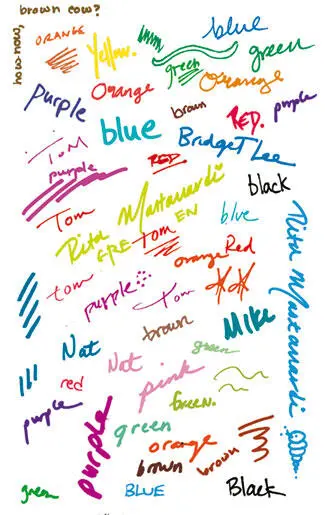 brown cow?
how now,
ORANGE
Yellow.
blue
green
green
Orange
Orange
purple
brown
RED.
purple
TOM
blue
Bridget Lee
purple
RED.
black
Tom
Rita Mastanardi
EN
blue
ERE
Tom
orange
Red
Rita Mastanardi
tom
purple
Tom
brown
Mike
Nat
Nat
green
red
pink
purple
purple
Green.
green
orange
brown
brown
green
BLUE
Black